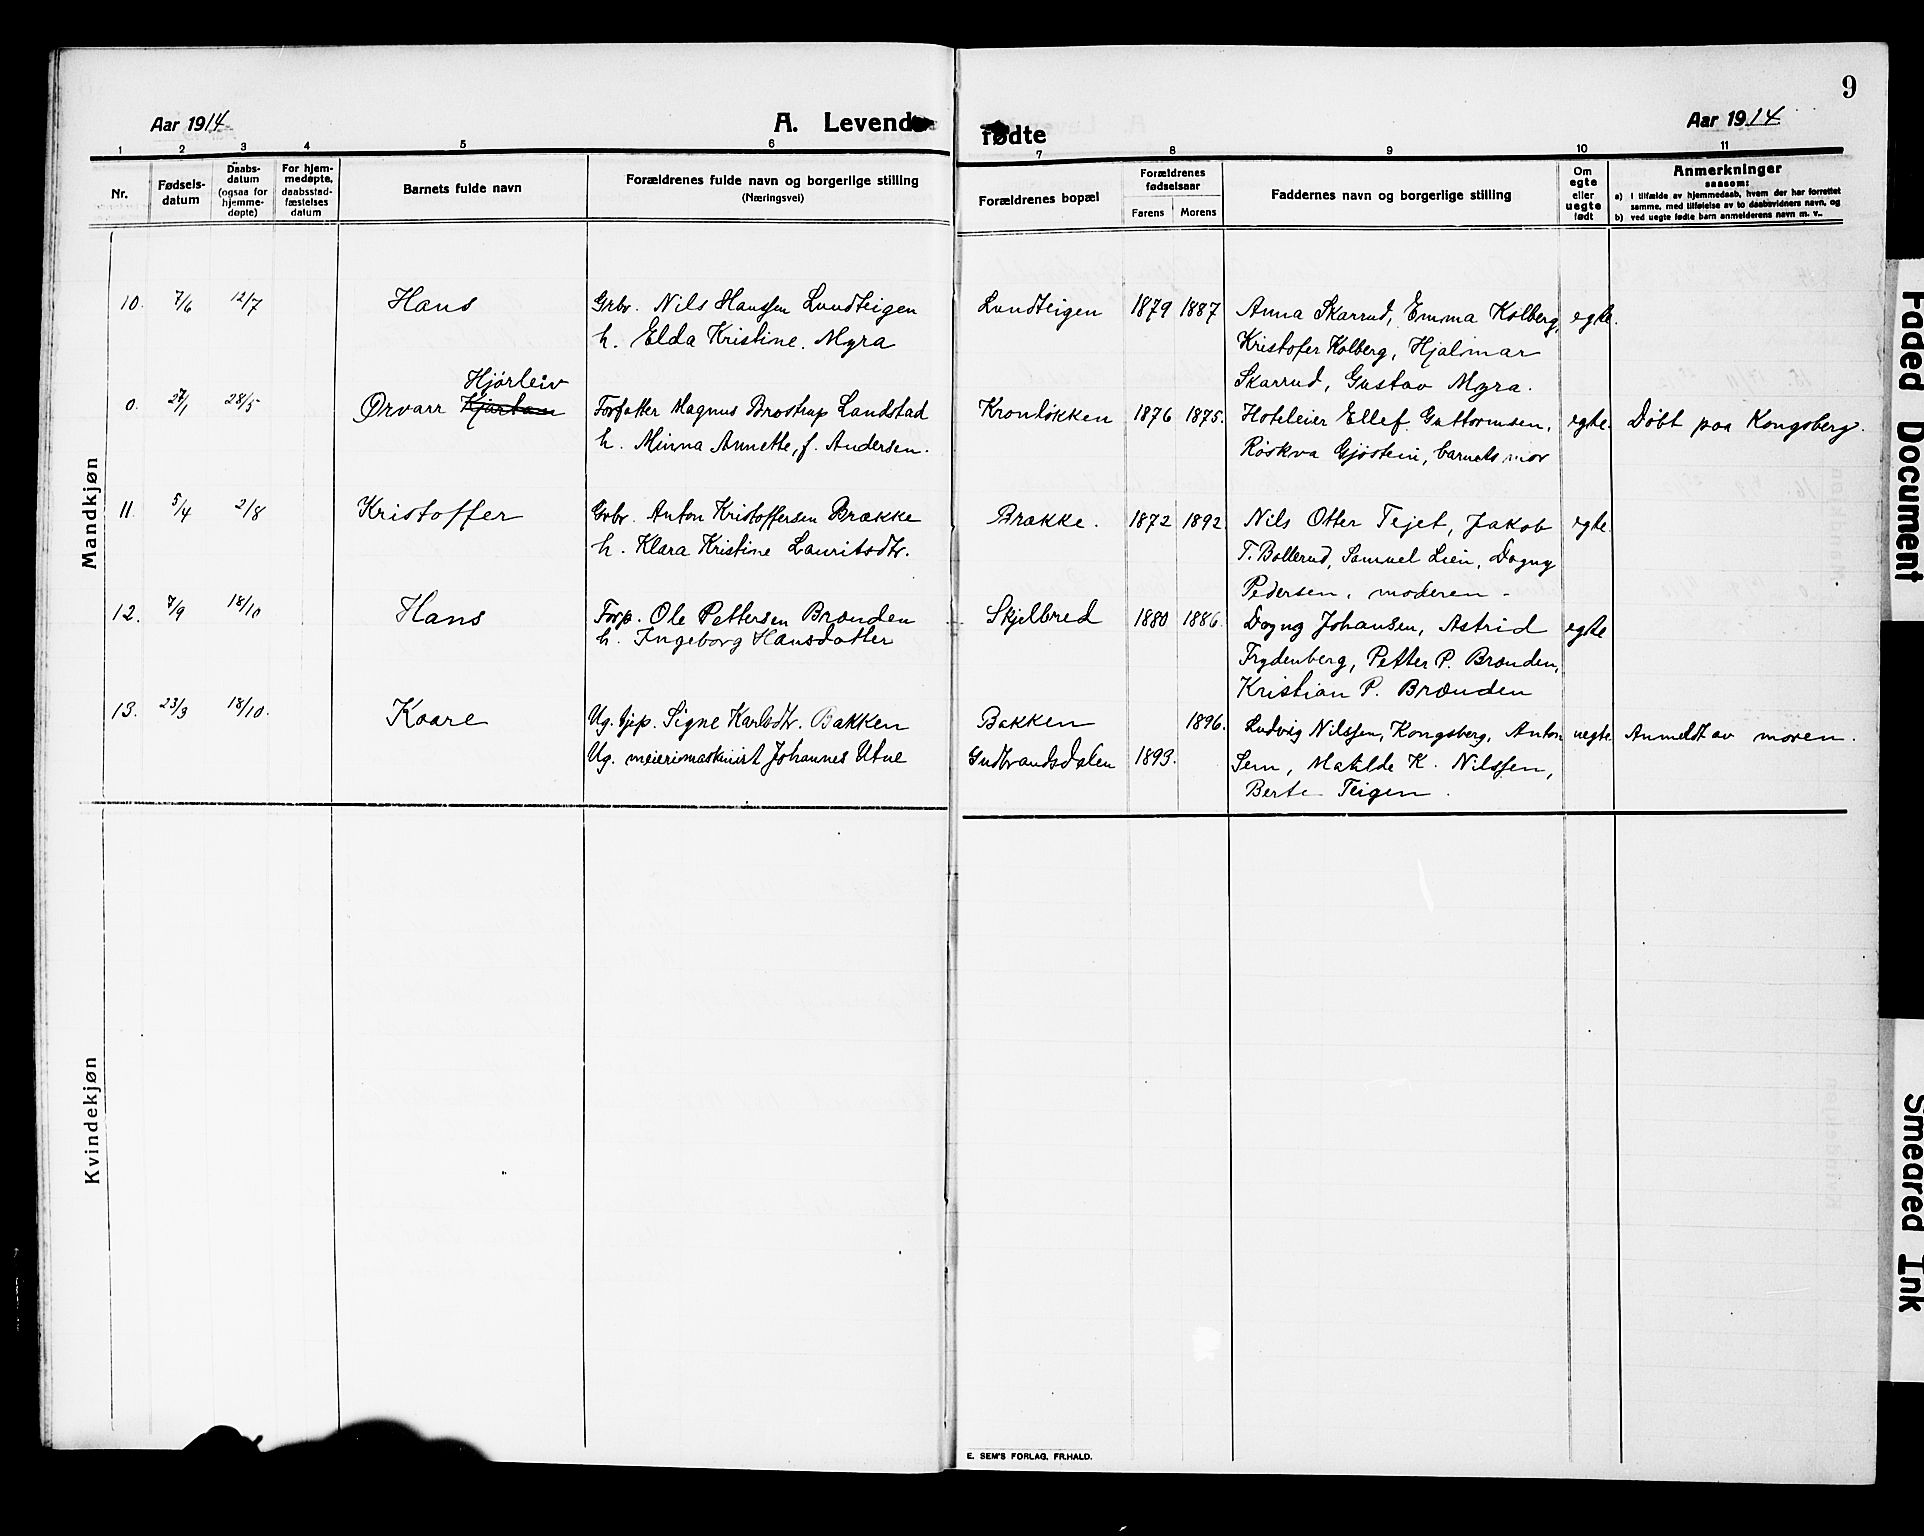 9
Aar 1914
A. Levende
fødte
Aar 1914
1 2 3 4 5 6 7 8 9 10 11
Nr.
Fødsels-
datum
Daabs-
datum
(ogsaa for
hjemme-
døpte)
For hjem-
medøpte,
daabsstad-
fæstelses
datum
Barnets fulde navn
Forældrenes fulde navn og borgerlige stilling
(Næringsvei)
Forældrenes bopæl
Forældrenes
fødselsaar
Farens Morens
Faddernes navn og borgerlige stilling
Om
egte
eller
uegte
født
Anmerkninger
saasom:
a) I tilfælde av hjemmedaab, hvem der har forrettet
samme, med tilføielse av to daabsvidners navn, og
b) ved uegte fødte barn anmelderens navn m. v.
Mandkjøn
10. 7/6 12/7 Hans Grbr. Nils Hanssen Lundteigen Lundteigen 1879 1887 Anna Skarrud, Emma Kolberg, egte.
h. Elda Kristine. Myra Kristofer Kolberg, Hjalmar
Skarrud, Gustav Myra.
Hjørleiv
0. 28/5 Ørvarr Kjartan Forfatter Magnus Brostrup Landstad Kronløkken 1876 1875. Hoteleier Ellef Guttormsen, egte. Døbt paa Kongsberg.
h. Minna Annette, f. Andersen. Røskva Gjøstein, barnets mor
11. 5/4 2/8 Kristoffer Grbr. Anton Kristoffersen Brække Brække. 1872 1892 Nils Otter Tejet, Jakob egte.
h. Klara Kristine Lauritsdtr. T. Bollerud, Samuel Lien, Dagny
Pedersen, moderen.
12. 7/9 18/10 Hans Forp. Ole Pettersen Brænden Skjelbred 1880 1886. Dagny Johansen, Astrid egte
h. Ingeborg Hansdatter Frydenberg, Petter P. Brænden,
Kristian P. Brænden
13. 23/3 18/10. Kaare Ug. tjp. Signe Karlsdtr. Bakken Bakken 1896. Ludvig Nilssen, Kongsberg, Anton uegte. Anmeldt av moren.
Ug. meierimaskinist Johannes Utne Gudbrandsdalen 1893. Sem, Matilde K. Nilssen,
Berte Teigen.
Kvindekjøn
E. SEM'S FORLAG. FR.HALD.
Faded Document
Smeared Ink